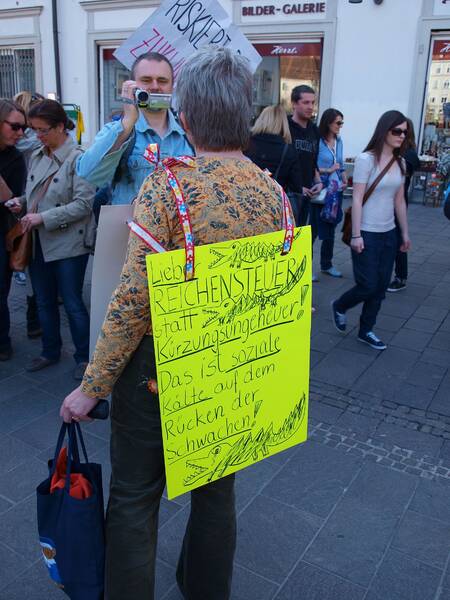 RISKIERT
BILDER-GALERIE
Liebe
REICHENSTEUER
statt
Kürzungsungeheuer!
Das ist soziale
Kälte auf dem
Rücken der
Schwachen!